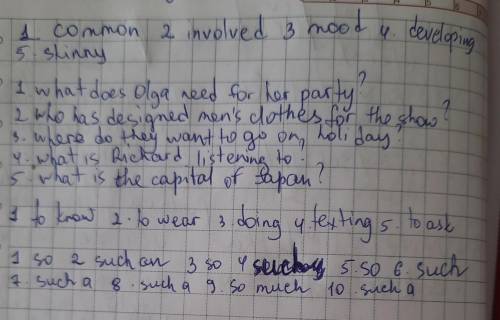 1 common 2 involved 3 mood 4. developing
5. skinny
1 what does Olga need for her party?
2 who has designed men's clothes for the show?
3. where do they want to go on, holiday?
4. what is Richard listening to.
5 what is the capital of Japan?
1 to know 2. to wear 3. doing 4. texting 5. to ask
1 so 2 such an 3 so 4 5. so 6. such
7. such a 8. such a 9. so much 10. such a